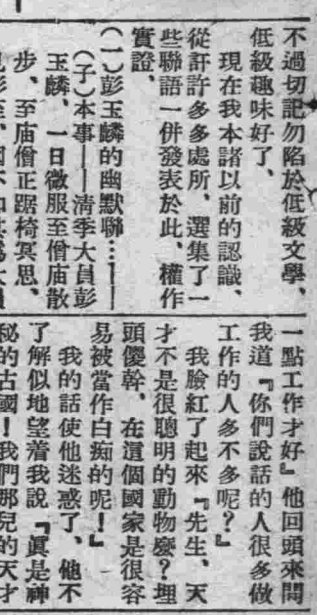 不過切記勿陷於低級文學、
低級趣味好了、
現在我本諸以前的認識、
從許許多多處所、選集了一
些聯語一併發表於此、權作
實證、
(一)彭玉麟的幽默聯…:——
(子)本事——清季大員彭
玉麟、一日微服至僧庙散
步、至庙僧正踞椅冥思、
一點工作才好』他回頭來問
我道『你們說話的人很多做
工作的人多不多呢?』
我臉紅了起來『先生、天
才不是很聰明的動物麼?埋
頭傻幹、在這個國家是很容
易被當作白痴的呢!』
我的話使他迷惑了、他不
了解似地望着我說『眞是神
秘的古國!我們那兒的天才